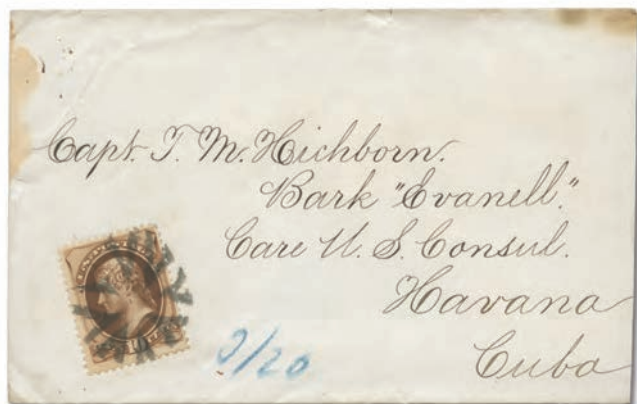 Capt. T. M. Hichborn.
Bark "Evanell."
Care U. S. Consul.
Havana
Cuba
10